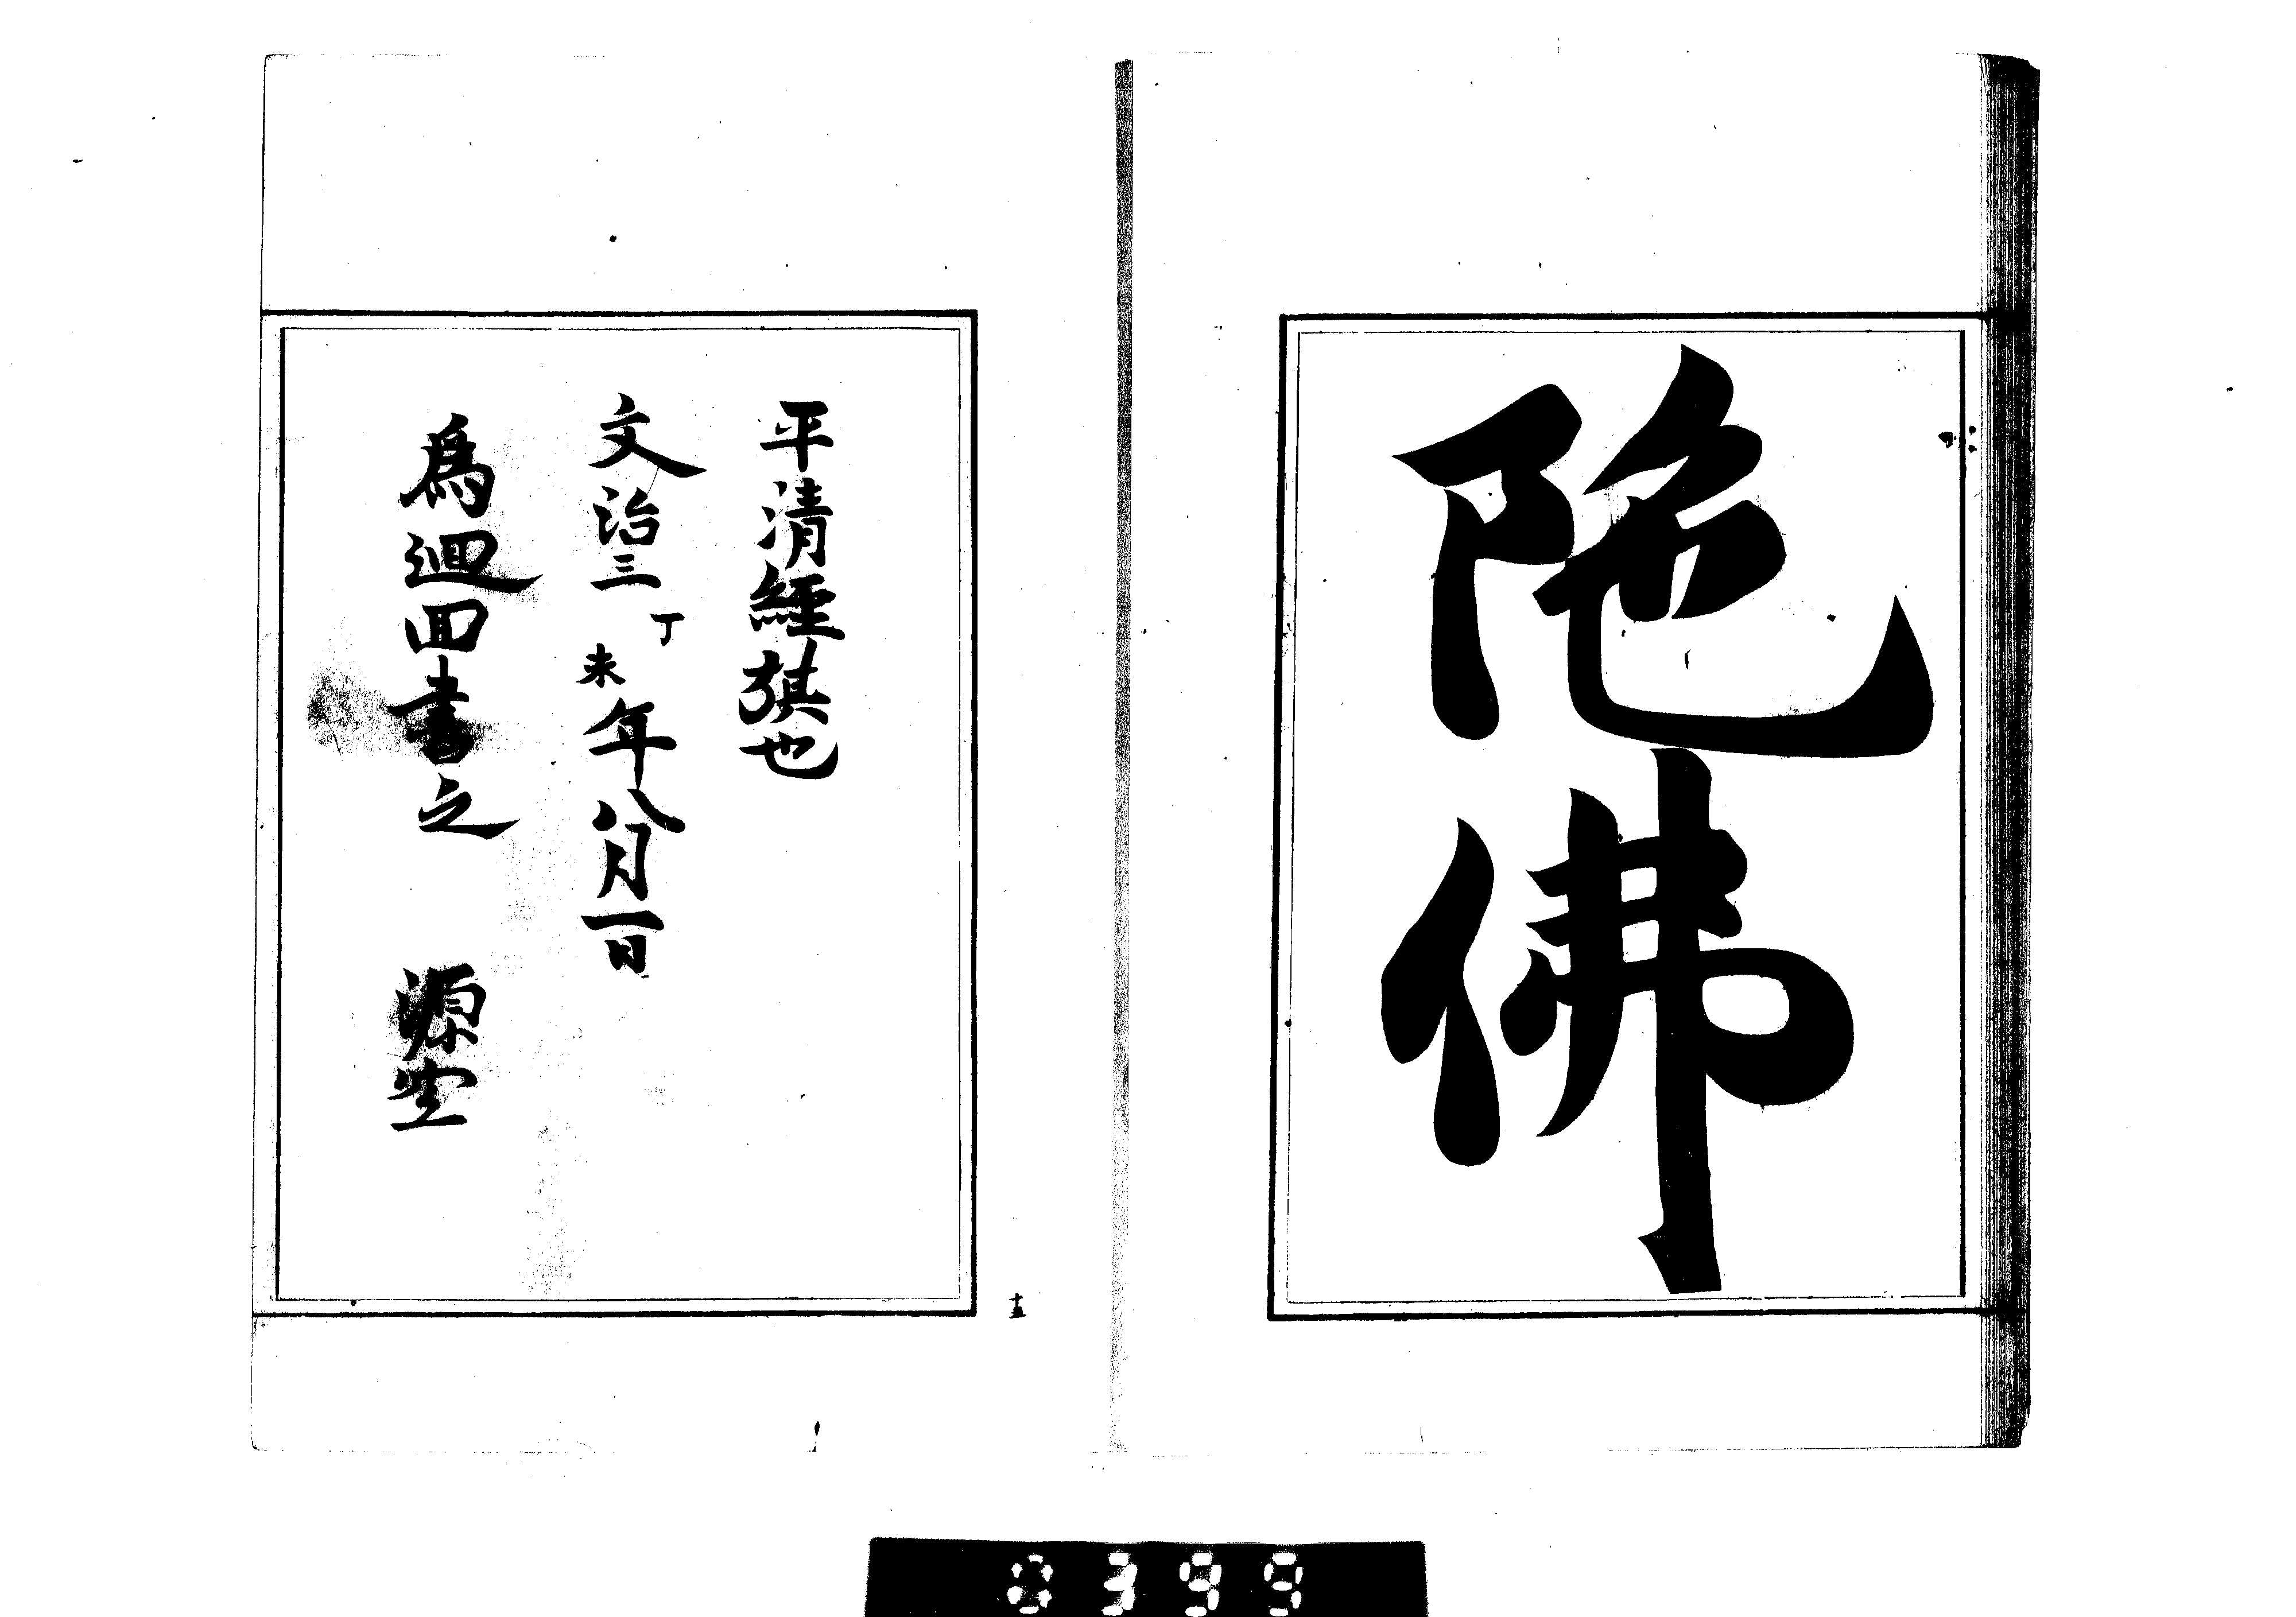 陁佛
平清經猉也
文治三丁未年八月一日
為廻面書之 源空
十五
0399